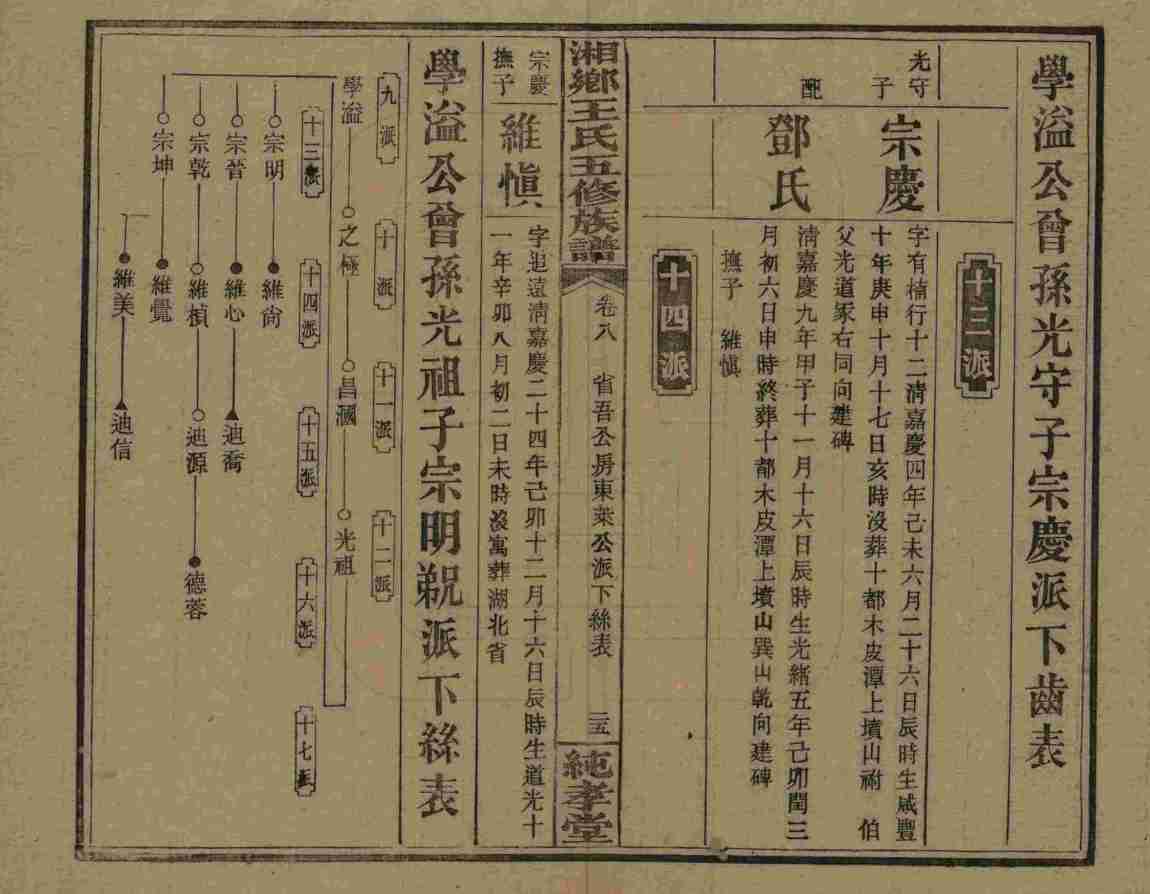 學溢公曾孫光守子宗慶派下齒表
十三派
光守子
宗慶
字有楠行十二清嘉慶四年己未六月二十六日辰時生咸豐
十年庚申十月十七日亥時没葬十都木皮潭上墳山祔伯
父光道冢右同向建碑
配
鄧氏
清嘉慶九年甲子十一月十六日辰時生光緒五年己卯閏三
月初六日申時終葬十都木皮潭上墳山巽山乾向建碑
撫子 維愼
十四派
湘鄉王氏五修族譜
卷八 省吾公房東萊公派下絲表 二五
純孝堂
宗慶撫子
維愼
字追遠清嘉慶二十四年己卯十二月十六日辰時生道光十
一年辛卯八月初二日未時没寓葬湖北省
學溢公曾孫光祖子宗明㸃派下絲表
九派 十派 十一派 十二派
學溢 之極 昌國 光祖
十三派 十四派 十五派 十六派 十七派
宗明 維尙
宗晉 維心 迪喬
宗乾 維楨 迪源 德蓉
宗坤 維覺
維美 迪信